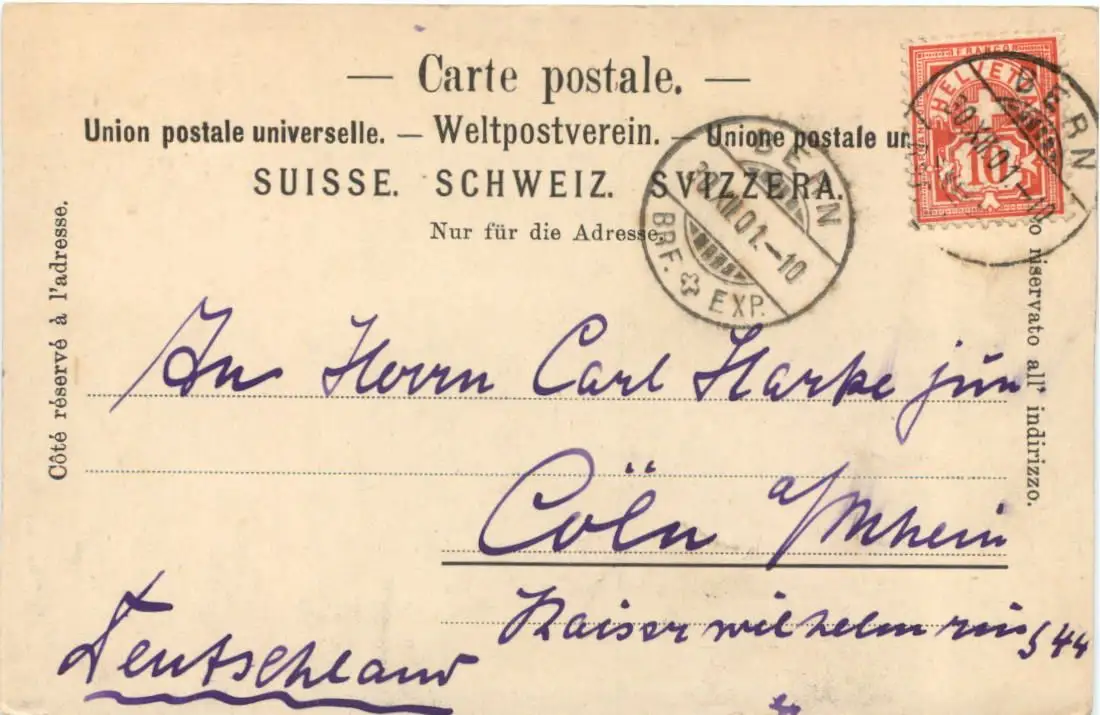 — Carte postale. —
Union postale universelle. — Weltpostverein. — Unione postale un
SUISSE. SCHWEIZ. SVIZZERA.
Nur für die Adresse.
Côté réservé à l'adresse.
riservato all' indirizzo.
FRANCO
HELVETIA
10
BERN
XII 01.–10
BRF. EXP.
BERN
XII 01–10
An Herrn Carl Harke jun
Cöln a/Rhein
Kaiser wilhelm ring 44
Deutschland